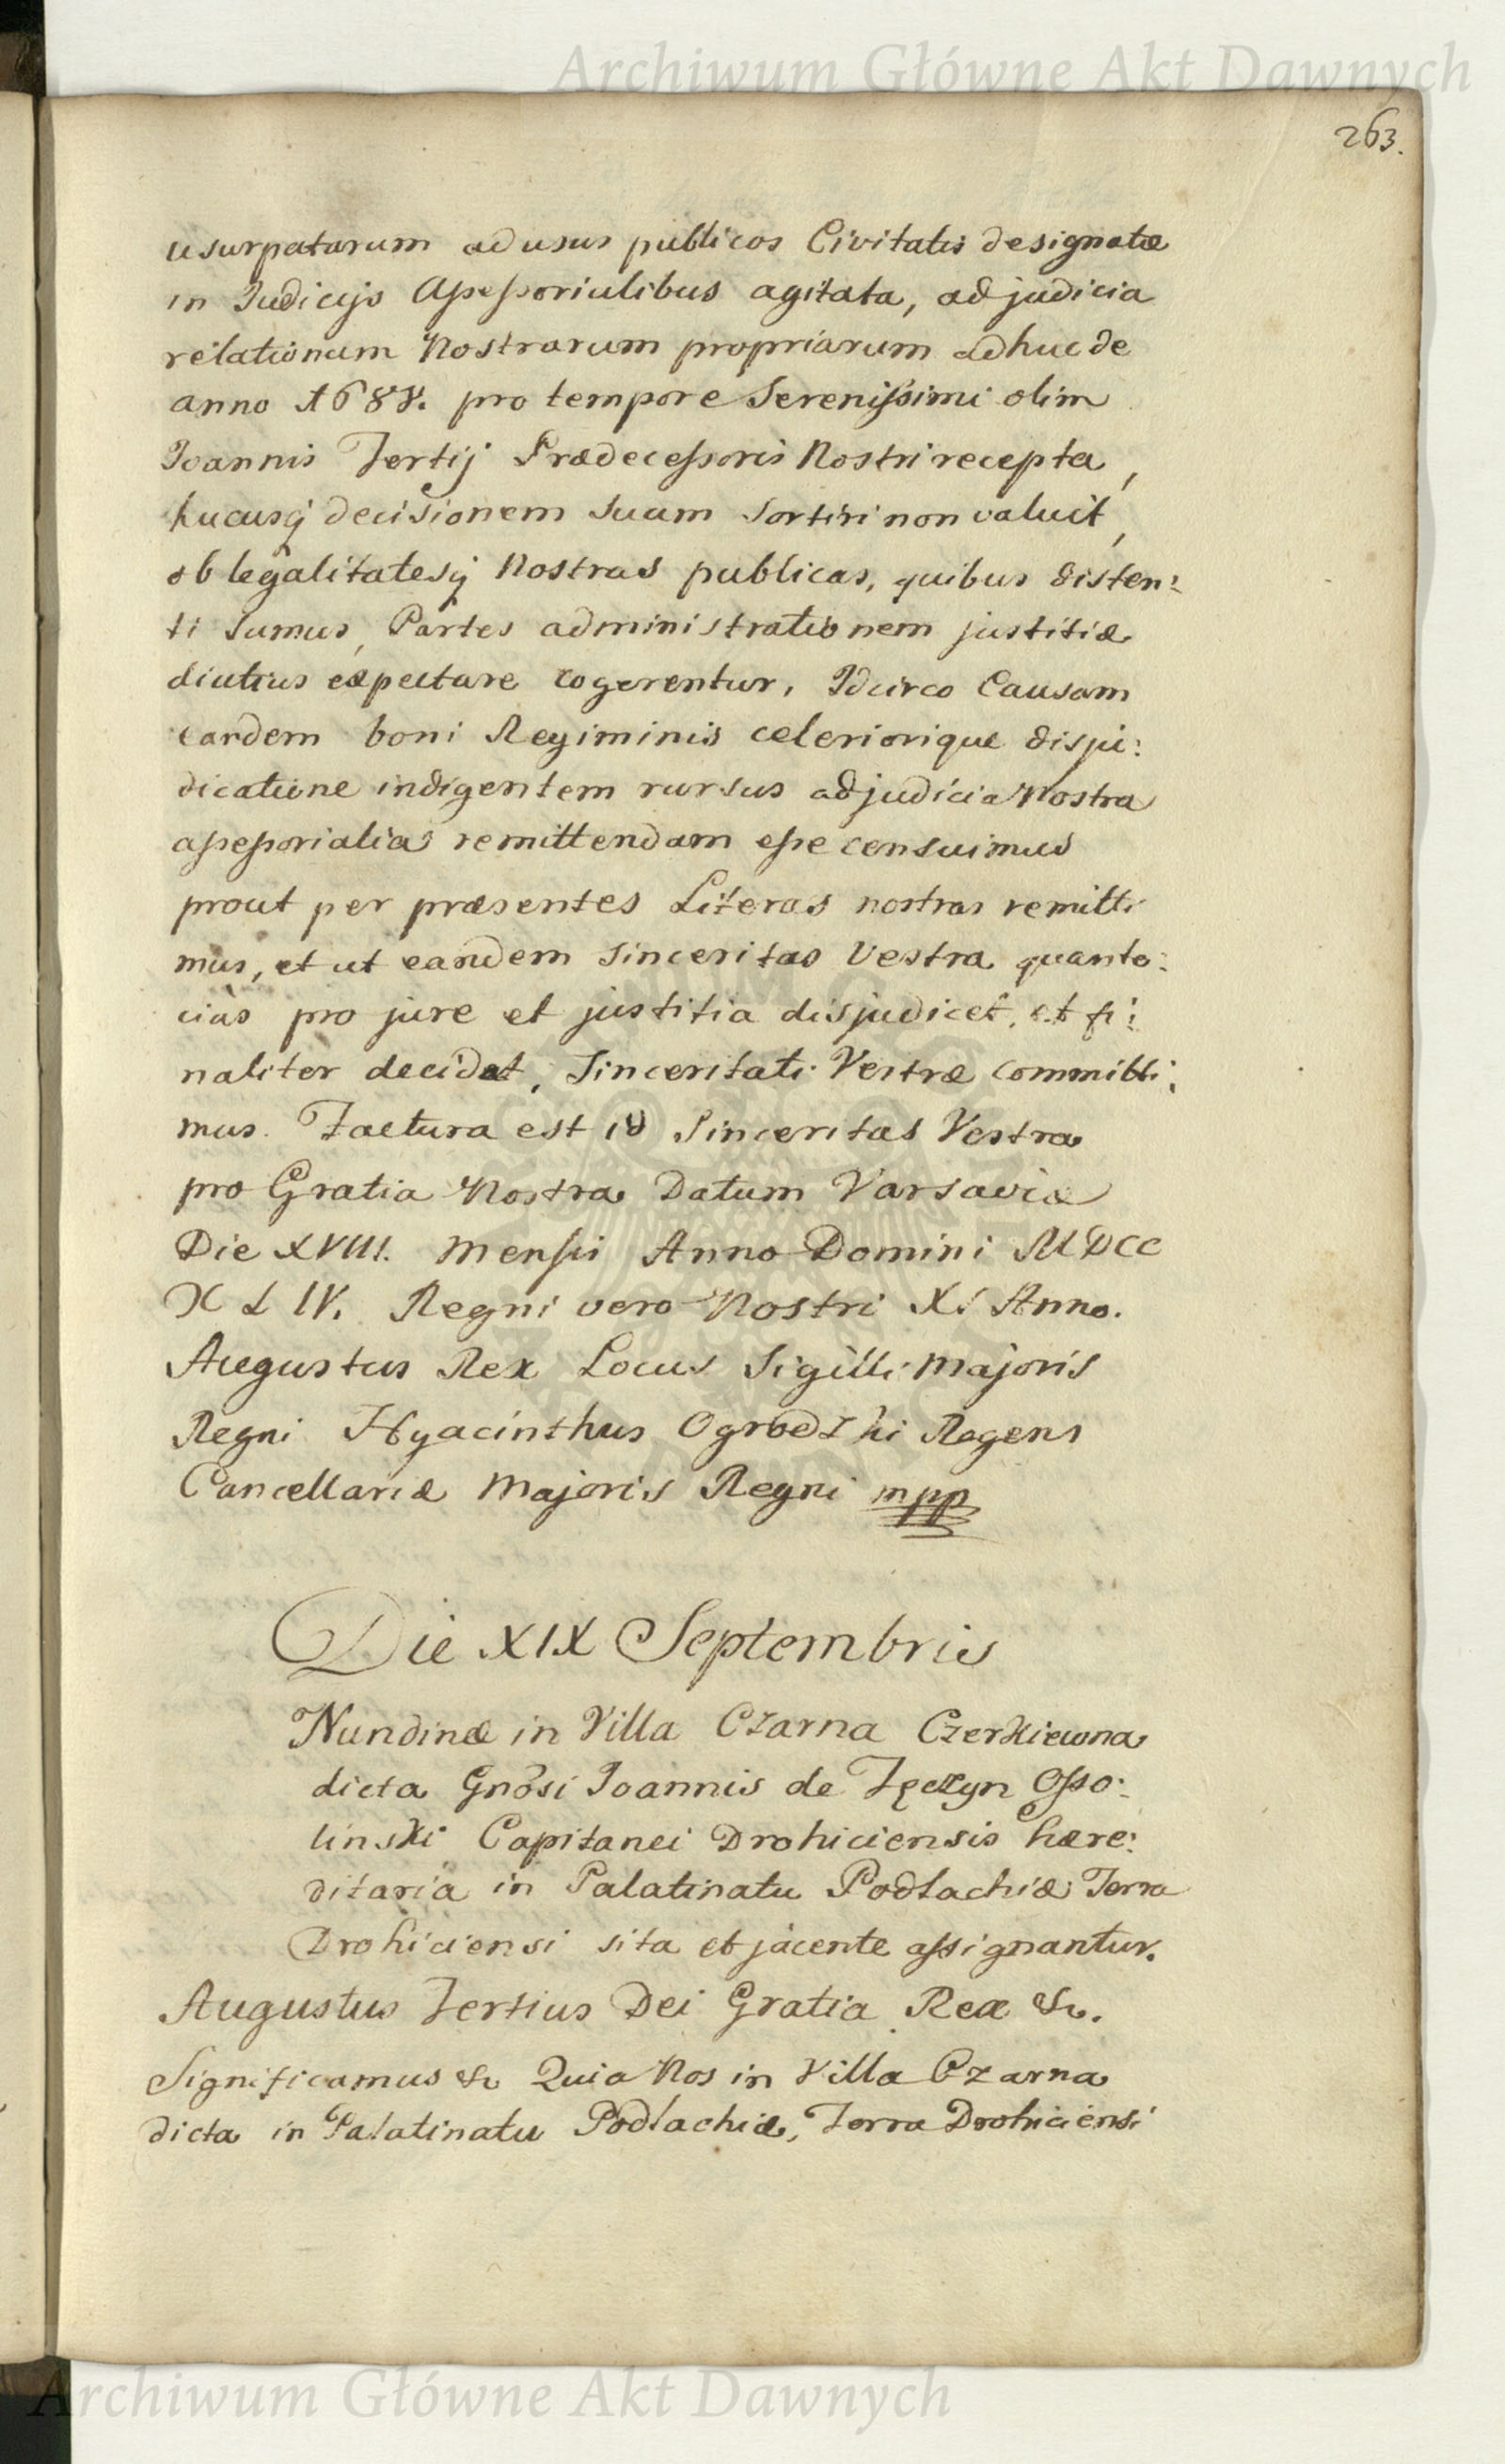 Archiwum Główne Akt Dawnych
263.
usurpatarum ad usus publicos Civitatis designatæ
in Judicijs Assessorialibus agitata, ad judicia
relationum Nostrarum propriarum adhuc de
anno 1688. pro tempore Serenissimi olim
Joannis Tertij Prædecessoris Nostri recepta,
hucusq decisionem suam sortiri non valuit,
ob legalitatesq Nostras publicas, quibus disten:
ti sumus, Partes administrationem justitiæ
diutius expectare cogerentur, Idcirco Causam
eandem boni Regiminis celeriorique disju:
dicatione indigentem rursus ad judicia Nostra
assessorialia remittendam esse censuimus
prout per præsentes Literas nostras remitti
mus, et ut eandem Sinceritas Vestra quanto:
cius pro jure et justitia disjudicet, et fi:
naliter decidat, Sinceritati Vestræ committi:
mus. Factura est id Sinceritas Vestra
pro Gratia Nostra Datum Varsaviæ
Die XVIII. Mensis Anno Domini MDCC
XLIV. Regni vero Nostri XI Anno.
Augustus Rex Locus Sigilli Majoris
Regni Hyacinthus Ogrodzki Regens
Cancellariæ Majoris Regni mpp
Die XIX Septembris
Nundinæ in Villa Czarna Czerkiewna
dicta Gnosi Joannis de Tęczyn Osso:
linski Capitanei Drohiciensis hære:
ditaria in Palatinatu Podlachiæ Terra
Drohiciensi sita et jacente assignantur.
Augustus Tertius Dei Gratia Rex &c.
Significamus &c Quia Nos in Villa Czarna
dicta in Palatinatu Podlachiæ, Terra Drohiciensi
Archiwum Główne Akt Dawnych